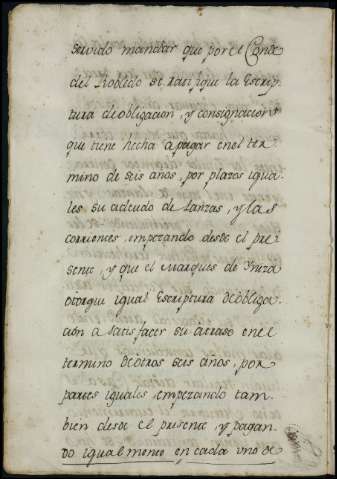 servido mandar que por el Conde
del Robledo se ratifique la Escrip-
tura de obligacion, y consignacion
que tiene hecha a pagar en el ter-
mino de seis años, por plazos igua-
les su adeudo de Lanzas, y las
corrientes, empezando desde el pre
sente, y que el Marques de
otorgue igual Escriptura de obliga-
cion a satisfacer su atraso en el
termino de otros seis años, por
partes iguales, empezando tam-
bien desde el presente y pagan-
do igualmente en cada uno de